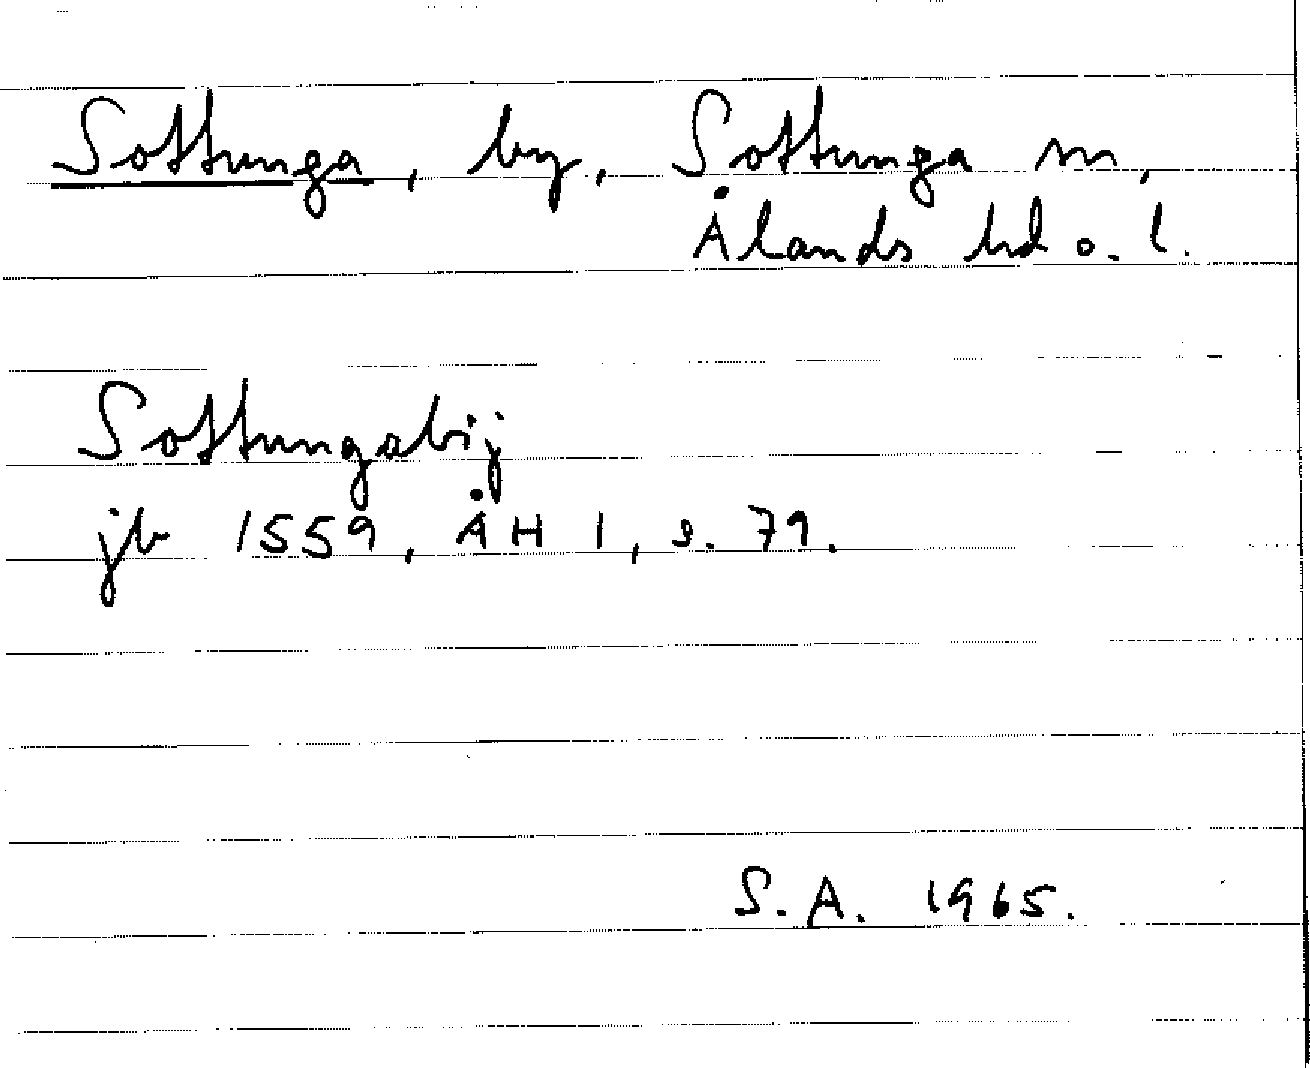 Sottunga, by, Sottunga sn,
Ålands hd o. l.
Sottungabij
jb 1559, ÅH 1, s. 79.
S.A. 1965.